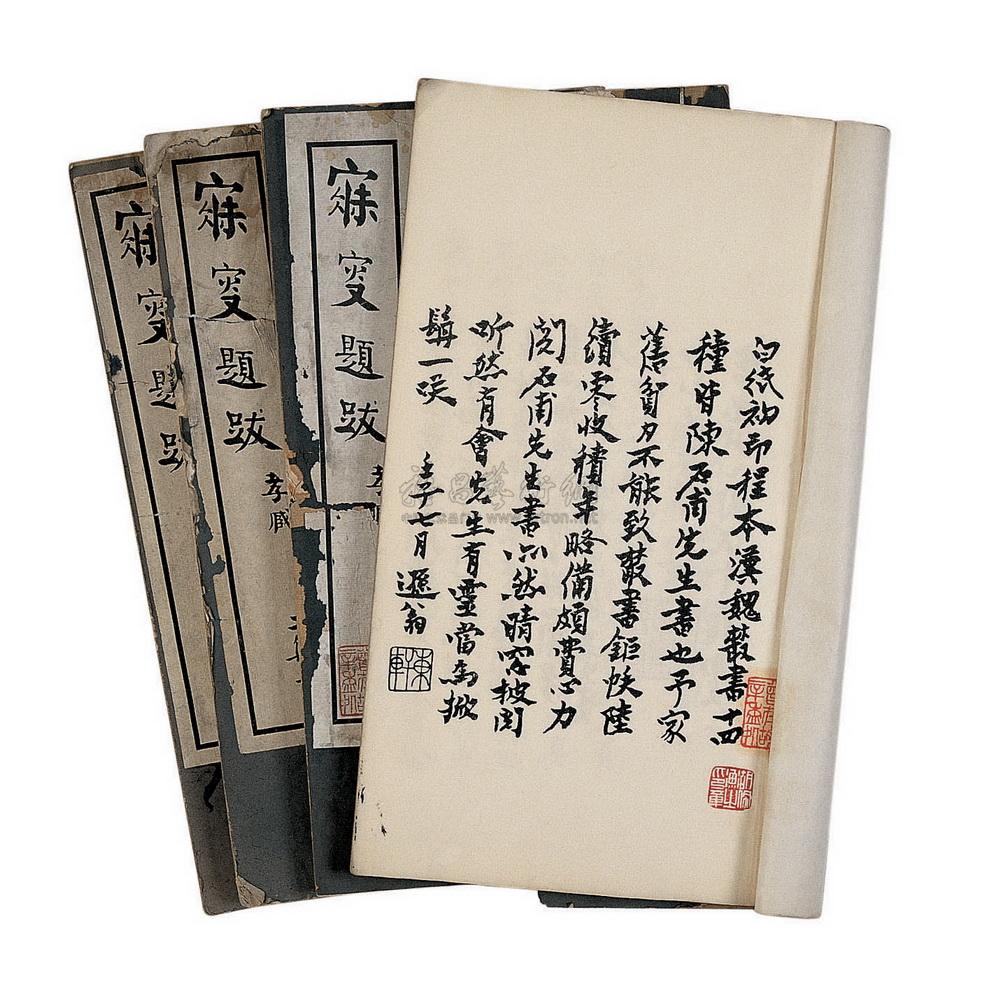 白紙初印程本漢魏叢書十四
種皆陳石甫先生書也予家
舊貧力不能致叢書鉅帙陸
續零收積年略備頗費心力
閱石甫先生書然晴窗披閱
昕然有會先生有靈當為掀
髯一咲 壬子七月 遯翁
東軒
寐叟題跋 孝
寐叟題跋 孝臧
寐叟題跋